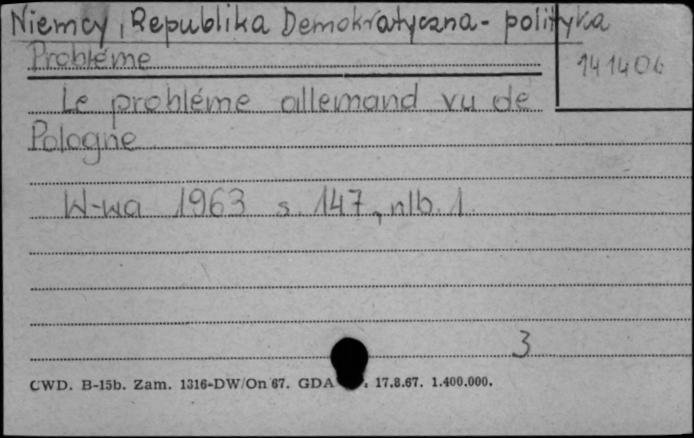 Niemcy, Republika Demokratyczna - polityka
Probléme
141406
Le probléme allemand vu de
Pologne
W-wa 1963 s. 147, nlb. 1.
3
CWD. B-15b. Zam. 1316-DW/On 67. GDA 17.8.67. 1.400.000.